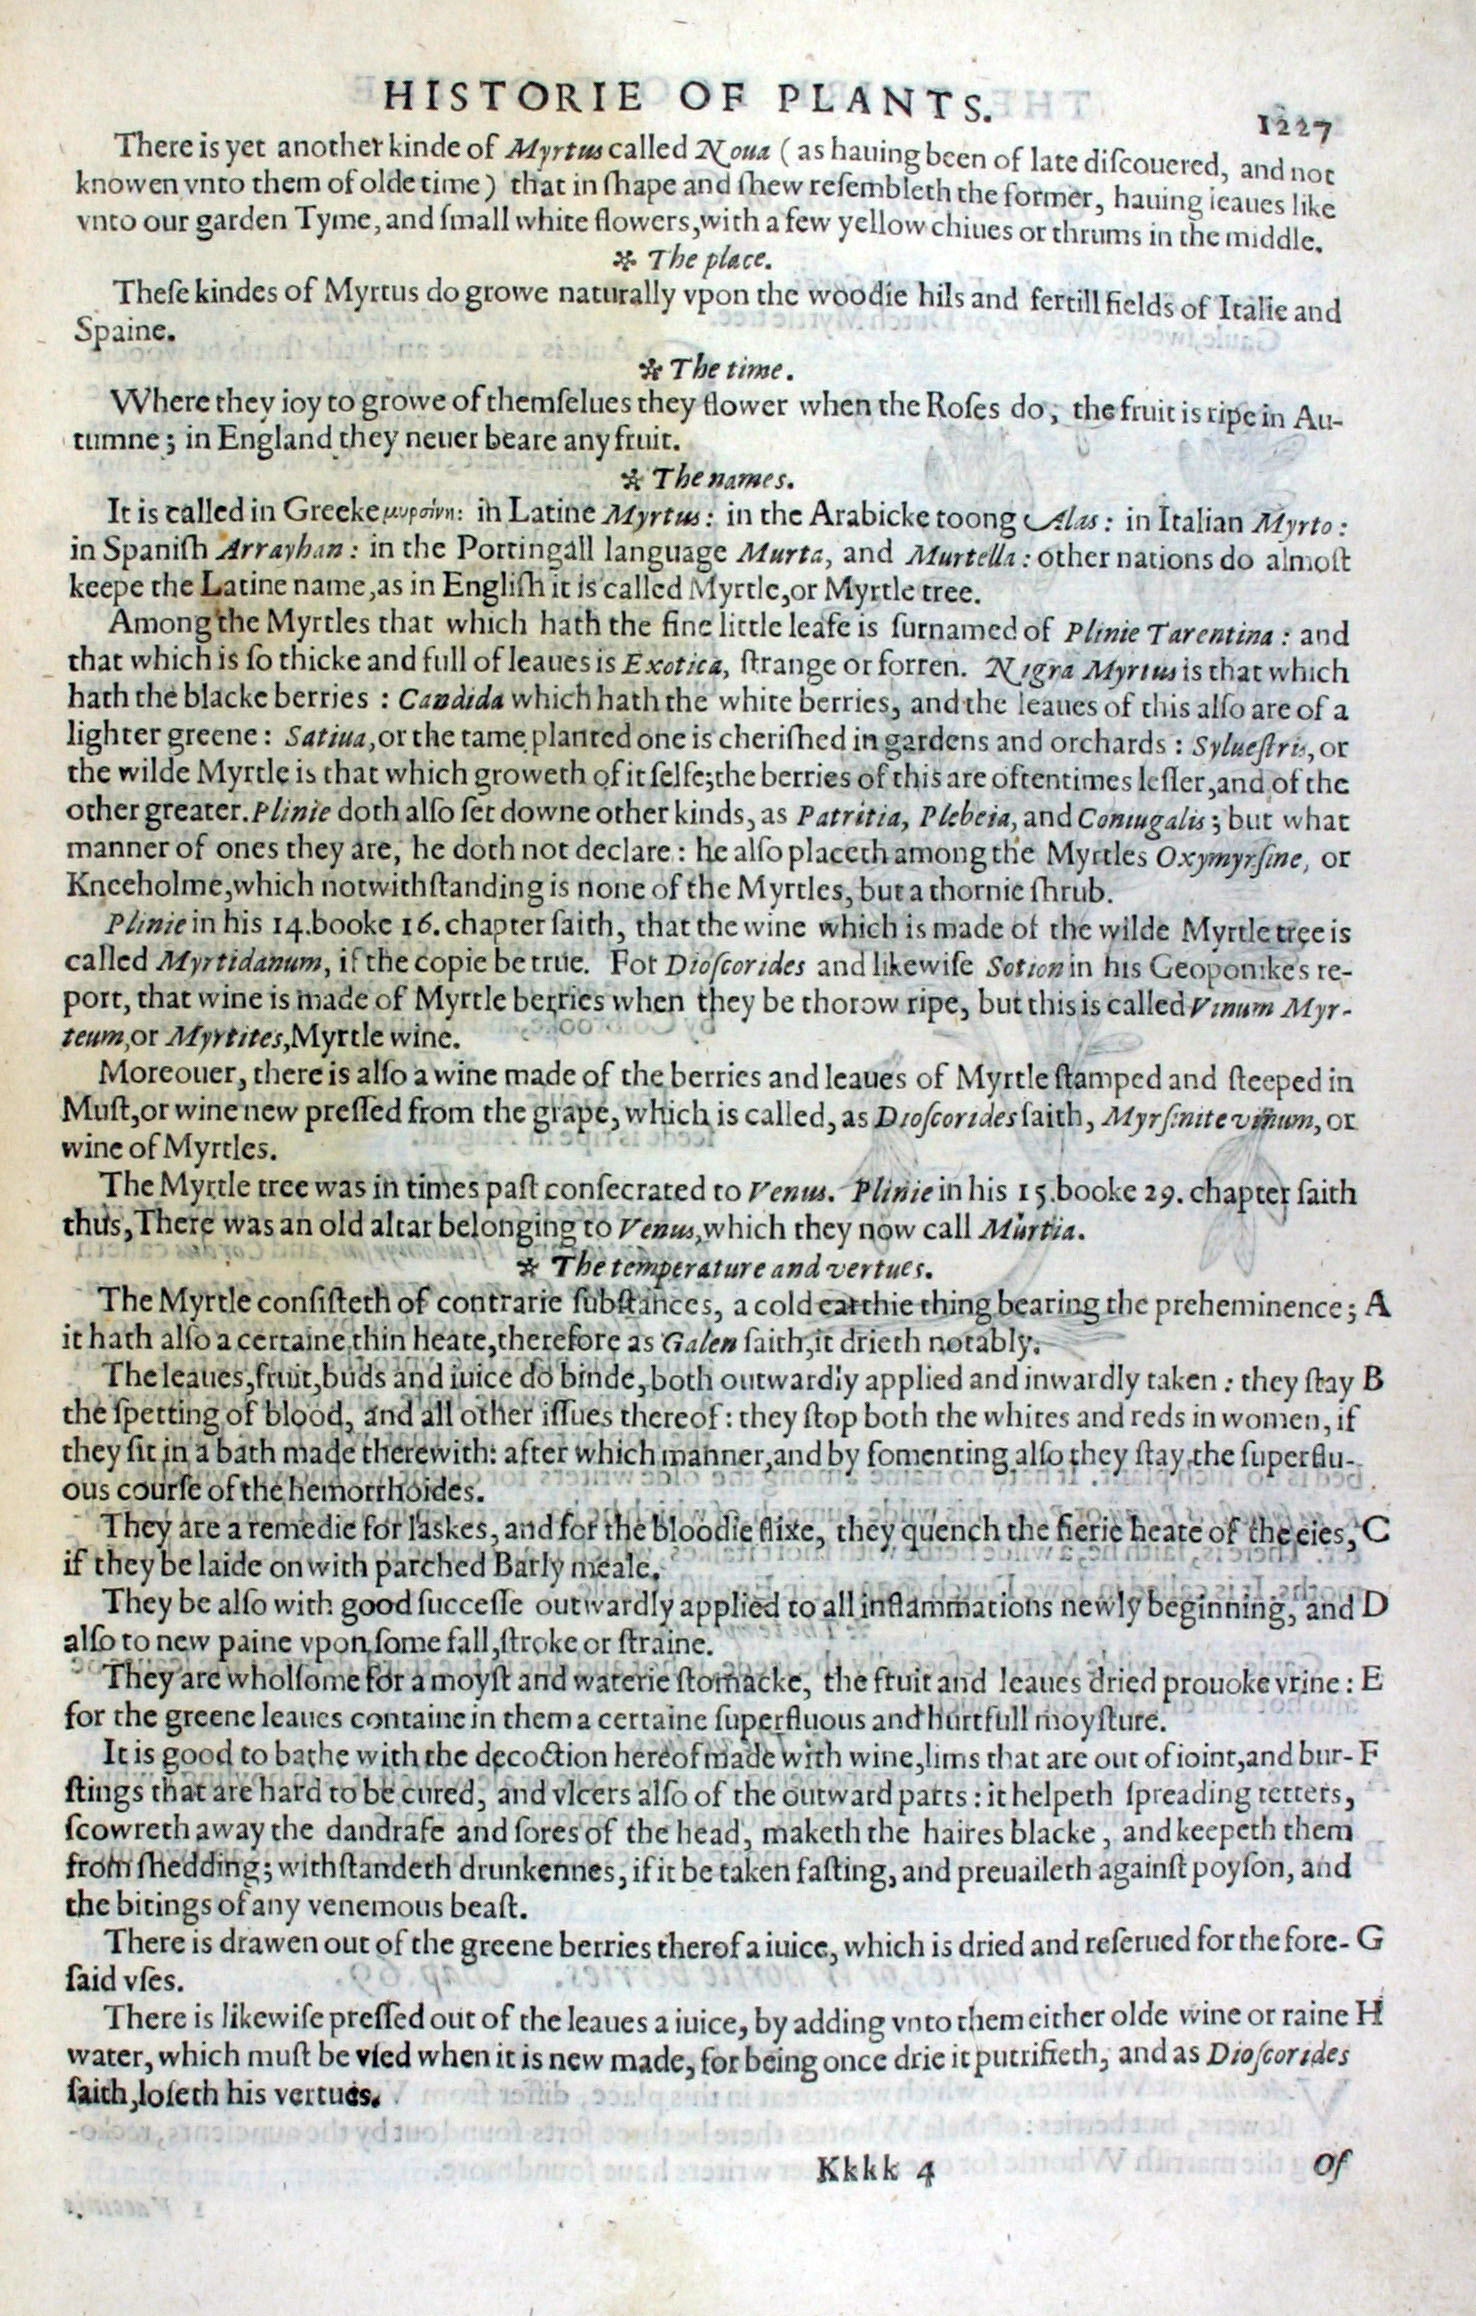 HISTORIE OF PLANTS.
1227
There is yet another kinde of Myrtus called Noua (as hauing been of late diſcouered, and not
knowen vnto them of olde time) that in ſhape and ſhew reſembleth the former, hauing leaues like
vnto our garden Tyme, and ſmall white flowers, with a few yellow chiues or thrums in the middle.
✲ The place.
Theſe kindes of Myrtus do growe naturally vpon the woodie hils and fertill fields of Italie and
Spaine.
✲ The time.
Where they ioy to growe of themſelues they flower when the Roſes do, the fruit is ripe in Au-
tumne; in England they neuer beare any fruit.
✲ The names.
It is called in Greeke μυρσίνη: in Latine Myrtus: in the Arabicke toong Alas: in Italian Myrto:
in Spaniſh Arrayhan: in the Portingall language Murta, and Murtella: other nations do almoſt
keepe the Latine name, as in Engliſh it is called Myrtle, or Myrtle tree.
Among the Myrtles that which hath the fine little leafe is ſurnamed of Plinie Tarentina: and
that which is ſo thicke and full of leaues is Exotica, ſtrange or forren. Nigra Myrtus is that which
hath the blacke berries: Candida which hath the white berries, and the leaues of this alſo are of a
lighter greene: Satiua, or the tame planted one is cheriſhed in gardens and orchards: Sylueſtris, or
the wilde Myrtle is that which groweth of it ſelfe; the berries of this are oftentimes leſſer, and of the
other greater. Plinie doth alſo ſet downe other kinds, as Patritia, Plebeia, and Coniugalis; but what
manner of ones they are, he doth not declare: he alſo placeth among the Myrtles Oxymyrſine, or
Kneeholme, which notwithſtanding is none of the Myrtles, but a thornie ſhrub.
Plinie in his 14. booke 16. chapter ſaith, that the wine which is made of the wilde Myrtle tree is
called Myrtidanum, if the copie be true. For Dioſcorides and likewiſe Sotion in his Geoponikes re-
port, that wine is made of Myrtle berries when they be thorow ripe, but this is called Vinum Myr-
teum, or Myrtites, Myrtle wine.
Moreouer, there is alſo a wine made of the berries and leaues of Myrtle ſtamped and ſteeped in
Muſt, or wine new preſſed from the grape, which is called, as Dioſcorides ſaith, Myrſinite vinum, or
wine of Myrtles.
The Myrtle tree was in times paſt conſecrated to Venus. Plinie in his 15. booke 29. chapter ſaith
thus, There was an old altar belonging to Venus, which they now call Murtia.
✲ The temperature and vertues.
The Myrtle conſiſteth of contrarie ſubſtances, a cold earthie thing bearing the preheminence; A
it hath alſo a certaine thin heate, therefore as Galen ſaith, it drieth notably.
The leaues, fruit, buds and iuice do binde, both outwardly applied and inwardly taken: they ſtay B
the ſpetting of blood, and all other iſſues thereof: they ſtop both the whites and reds in women, if
they ſit in a bath made therewith: after which manner, and by fomenting alſo they ſtay the ſuperflu-
ous courſe of the hemorrhoides.
They are a remedie for laskes, and for the bloodie flixe, they quench the fierie heate of the eies, C
if they be laide on with parched Barly meale.
They be alſo with good ſucceſſe outwardly applied to all inflammations newly beginning, and D
alſo to new paine vpon ſome fall, ſtroke or ſtraine.
They are wholſome for a moyſt and waterie ſtomacke, the fruit and leaues dried prouoke vrine: E
for the greene leaues containe in them a certaine ſuperfluous and hurtfull moyſture.
It is good to bathe with the decoction hereof made with wine, lims that are out of ioint, and bur- F
ſtings that are hard to be cured, and vlcers alſo of the outward parts: it helpeth ſpreading tetters,
ſcowreth away the dandrafe and ſores of the head, maketh the haires blacke, and keepeth them
from ſhedding; withſtandeth drunkennes, if it be taken faſting, and preuaileth againſt poyſon, and
the bitings of any venemous beaſt.
There is drawen out of the greene berries therof a iuice, which is dried and reſerued for the fore- G
ſaid vſes.
There is likewiſe preſſed out of the leaues a iuice, by adding vnto them either olde wine or raine H
water, which muſt be vſed when it is new made, for being once drie it putrifieth, and as Dioſcorides
ſaith, loſeth his vertues.
Kkkk 4
Of